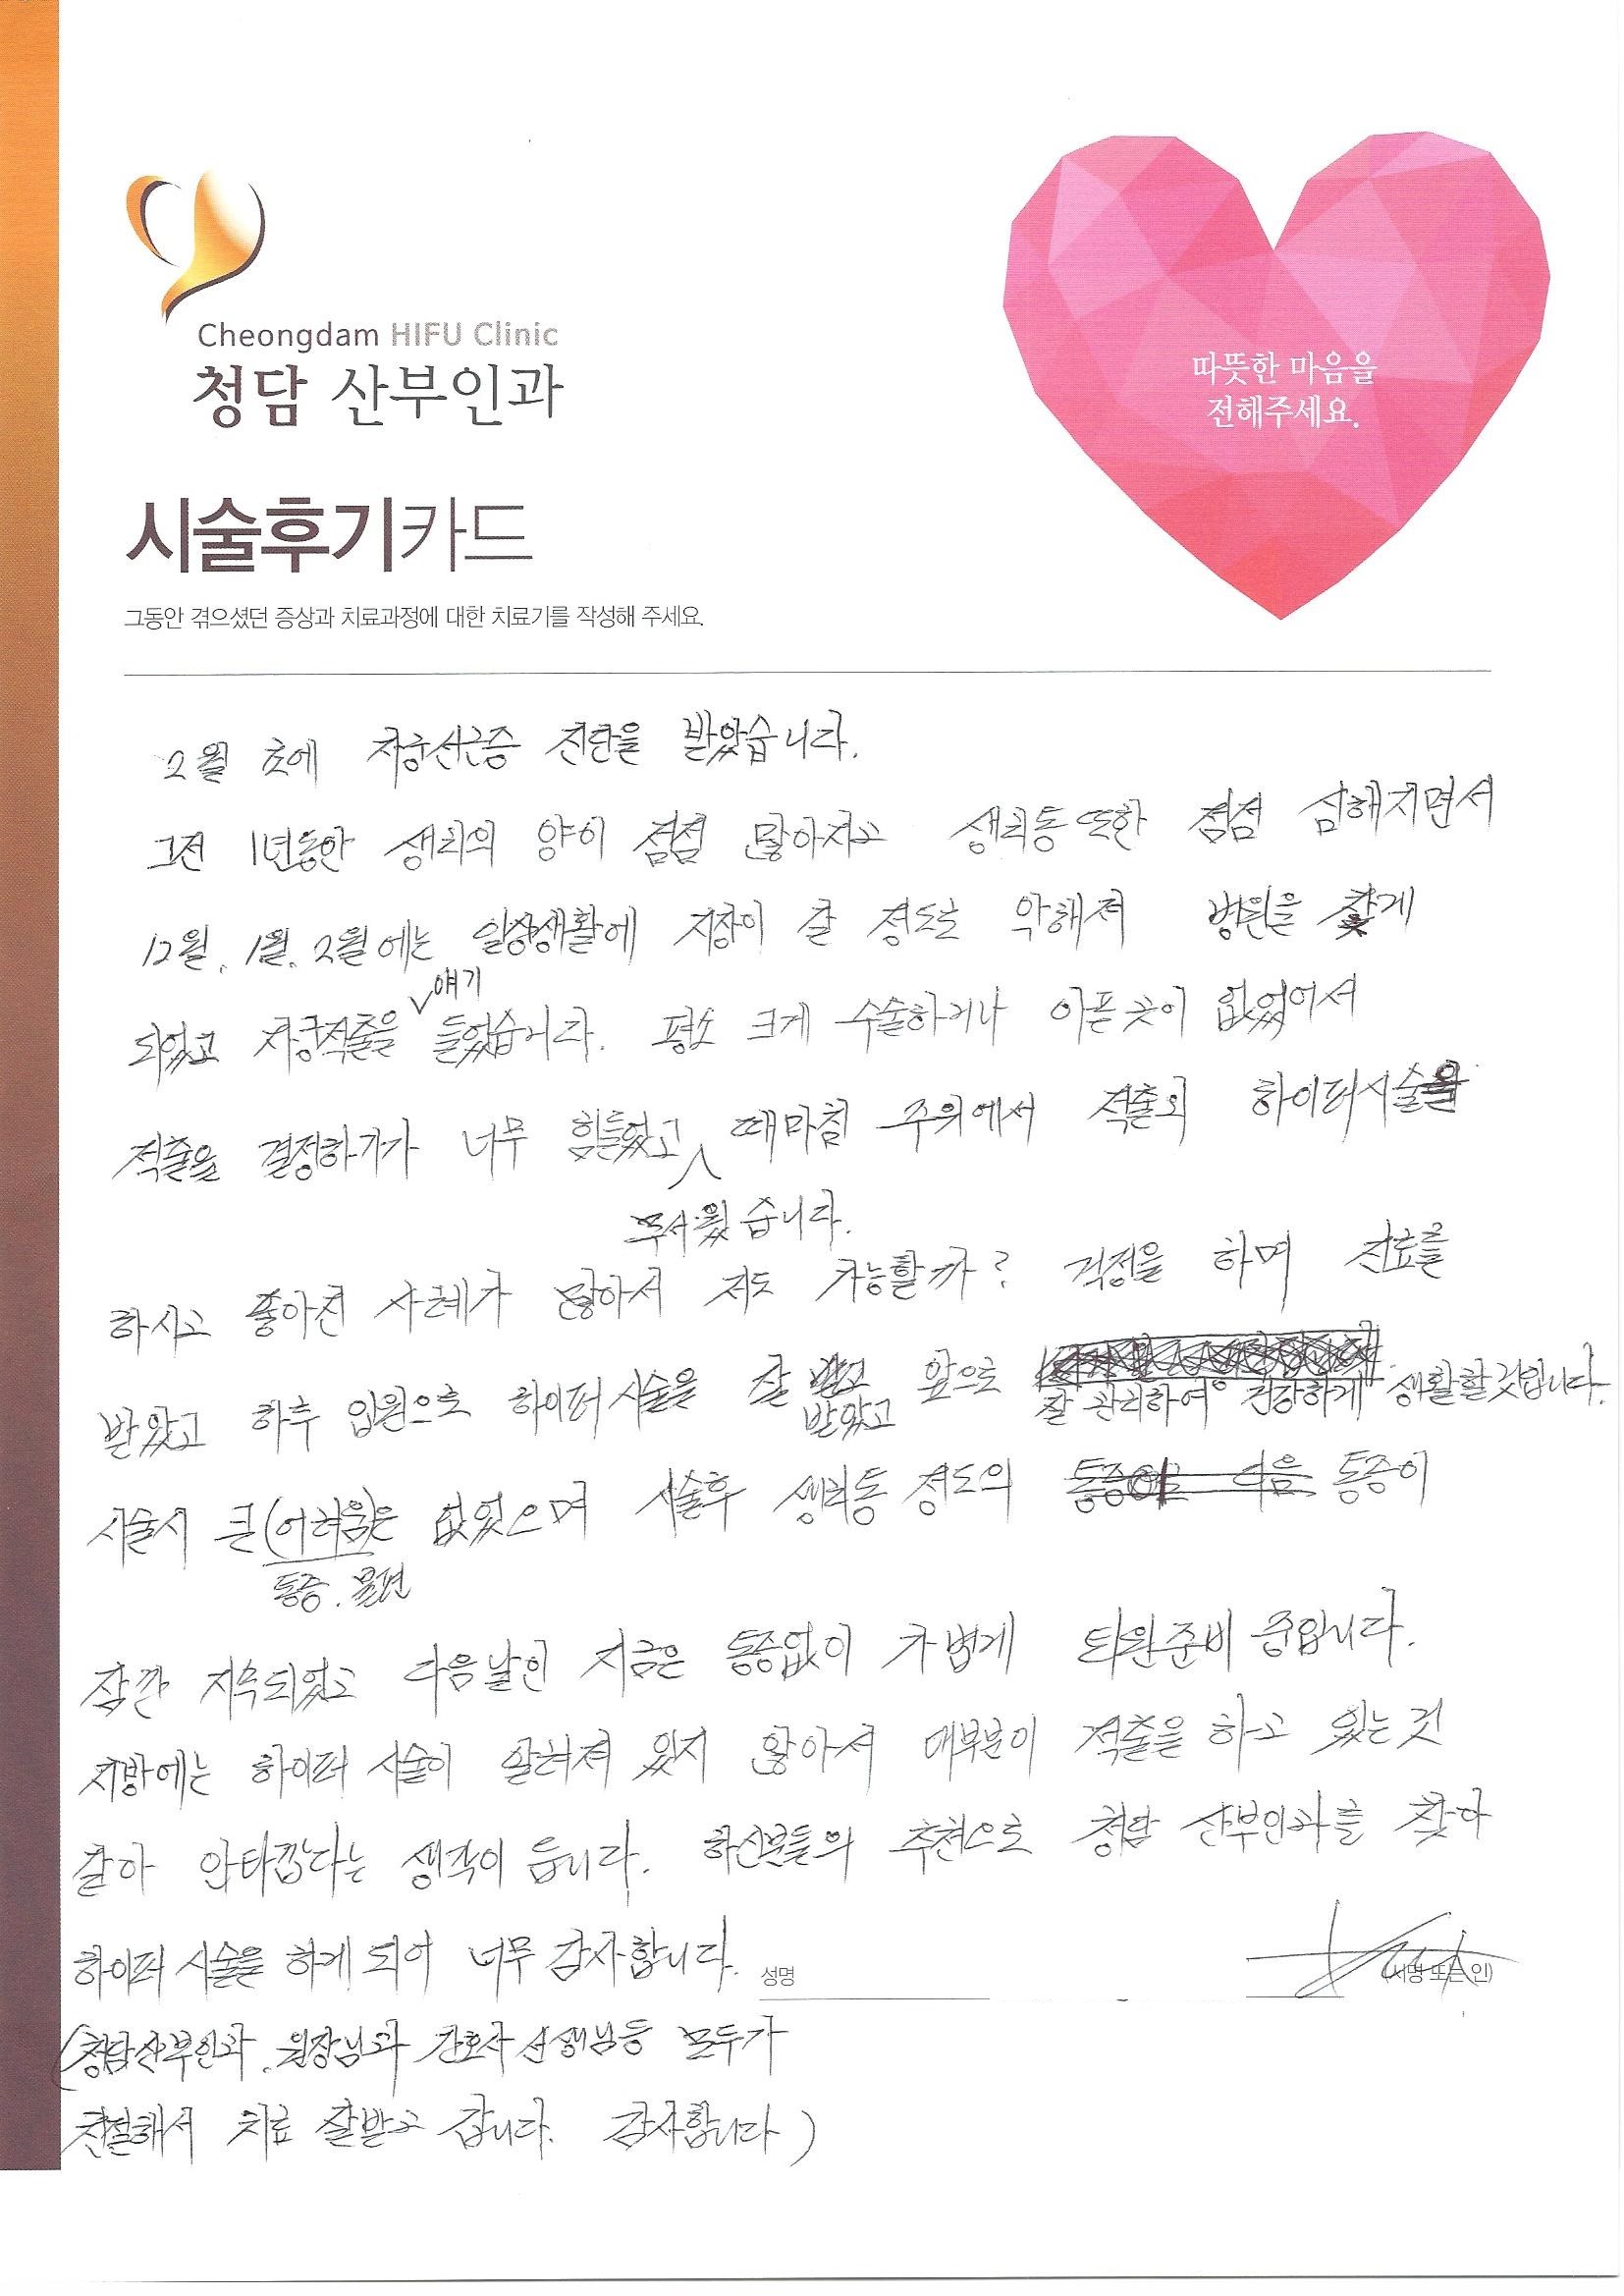 Cheongdam HIFU Clinic
청담 산부인과
따뜻한 마음을
전해주세요.
시술후기카드
그동안 겪으셨던 증상과 치료과정에 대한 치료기를 작성해 주세요.
2월 초에 자궁선근증 진단을 받았습니다.
그전 1년동안 생리의 양이 점점 많아지고 생리통 또한 점점 심해지면서
12월, 1월, 2월에는 일상생활에 지장이 갈 정도로 악해져 병원을 찾게
얘기
되었고 자궁적출을 들었습니다. 평소 크게 수술하거나 아픈 곳이 없었어서
적출을 결정하기가 너무 힘들었고 때마침 주위에서 적출외 하이퍼시술을
무서웠습니다.
하시고 좋아진 사례가 많아서 저도 가능할까? 걱정을 하며 진료를
받았고 하루 입원으로 하이퍼시술을 잘 받고 앞으로
받았고 잘 관리하여 건강하게 생활할것입니다.
시술시 큰(어려움)은 없었으며 시술후 생리통 정도의 통증이 다음 통증이
통증. 불편
잠깐 지속되었고 다음날인 지금은 통증없이 가볍게 퇴원준비 중입니다.
지방에는 하이퍼 시술이 알려져 있지 않아서 대부분이 적출을 하고 있는것
같아 안타깝다는 생각이 듭니다. 하신분들의 추천으로 청담 산부인과를 찾아
하이퍼 시술을 하게 되어 너무 감사합니다.
성명
(서명 또는 인)
(청담산부인과, 원장님과 간호사 선생님등 모두가
친절해서 치료 잘받고 갑니다. 감사합니다)